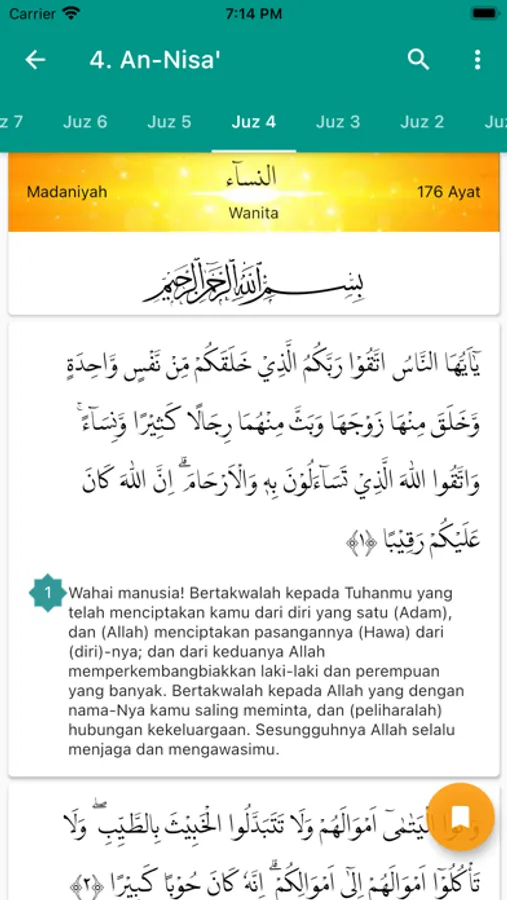 Carrier 7:14 PM
4. An-Nisa'
z 7 Juz 6 Juz 5 Juz 4 Juz 3 Juz 2 Juz
النساۤء
Madaniyah 176 Ayat
Wanita
بسم الله الرحمن الرحيم
يٰٓاَيُّهَا النَّاسُ اتَّقُوْا رَبَّكُمُ الَّذِيْ خَلَقَكُمْ مِّنْ نَّفْسٍ وَّاحِدَةٍ
وَّخَلَقَ مِنْهَا زَوْجَهَا وَبَثَّ مِنْهُمَا رِجَالًا كَثِيْرًا وَّنِسَاۤءً ۚ
وَاتَّقُوا اللّٰهَ الَّذِيْ تَسَاۤءَلُوْنَ بِهٖ وَالْاَرْحَامَ ۗ اِنَّ اللّٰهَ كَانَ
عَلَيْكُمْ رَقِيْبًا ﴿١﴾
1 Wahai manusia! Bertakwalah kepada Tuhanmu yang
telah menciptakan kamu dari diri yang satu (Adam),
dan (Allah) menciptakan pasangannya (Hawa) dari
(diri)-nya; dan dari keduanya Allah
memperkembangbiakkan laki-laki dan perempuan
yang banyak. Bertakwalah kepada Allah yang dengan
nama-Nya kamu saling meminta, dan (peliharalah)
hubungan kekeluargaan. Sesungguhnya Allah selalu
menjaga dan mengawasimu.
الْيَتٰمٰىٓ اَمْوَالَهُمْ وَلَا تَتَبَدَّلُوا الْخَبِيْثَ بِالطَّيِّبِ ۖ وَلَا
تَأْكُلُوْٓا اَمْوَالَهُمْ اِلٰٓى اَمْوَالِكُمْ ۗ اِنَّهٗ كَانَ حُوْبًا كَبِيْرًا ﴿٢﴾